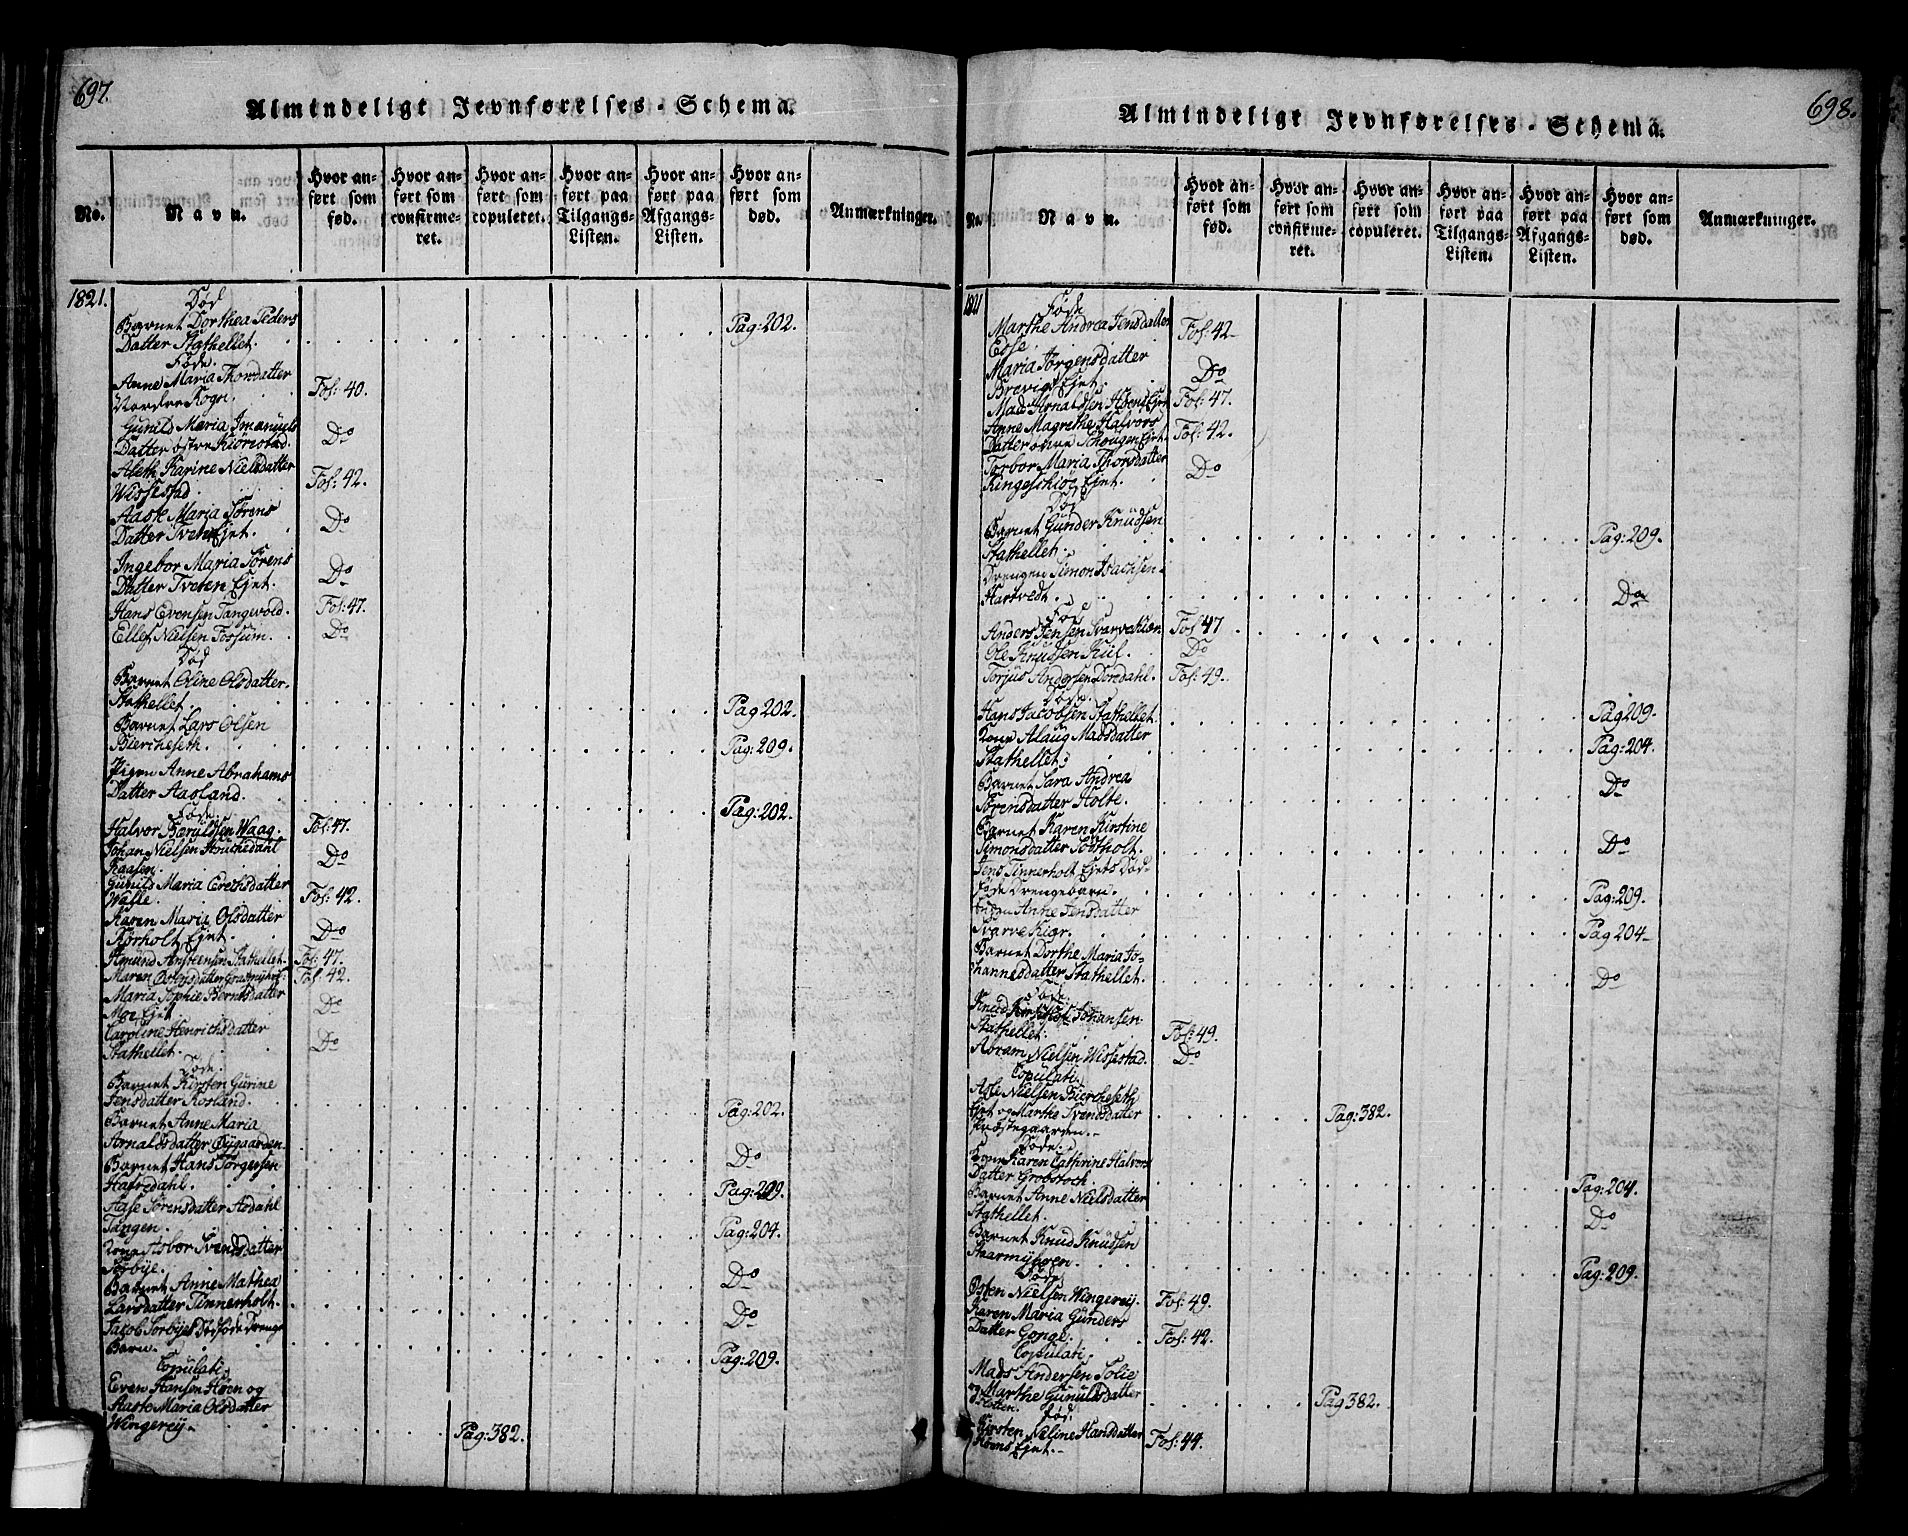 697.
Almindeligt Jevnførelses-Schema.
No.
Navn.
Hvor anført som fød.
Hvor anført som confirmeret.
Hvor anført som copuleret.
Hvor anført paa Tilgangs-Listen.
Hvor anført paa Afgangs-Listen.
Hvor anført som død.
Anmærkninger.
1821.
Død
Barnet Dorthea Peders
Datter Stathellet. Pag: 202.
Føde.
Anne Maria Thorsdatter
Nordre Rogn. Fol: 40.
Gunild Maria Imanuels
Datter østre Kiørrestad. Do
Aleth Karine Nielsdatter
Wissestad. Fol: 42.
Aaste Maria Sørens
Datter Tveten Ejet. Do
Ingebor Maria Sørens
Datter Tveten Ejet. Do
Hans Evensen Tangevold. Fol: 47.
Ellef Nielsen Fossum. Do
Død
Barnet Oline Olsdatter.
Stathellet. Pag 202.
Barnet Lars Olsen
Biercheseth. Pag: 209.
Pigen Anne Abrahams
Datter Aasland. Pag: 202.
Føde.
Halvor Beruldsen Waag. Fol: 47.
Johan Nielsen
Raasen. Do
Gunild Maria Erichsdatter
Walle. Fol: 42.
Karen Maria Olsdatter
Korholt Ejet. Do
Amund Anstensen Stathellet. Fol: 47.
Maren Fol: 42.
Maria Sophie Berntsdatter
Moe Ejet Do
Caroline Henrichsdatter
Stathellet. Do
Døde.
Barnet Kirsten Gurine
Jensdatter Rosland. Pag: 202.
Barnet Anne Maria
Arnaldsdatter Øygaarden. Do
Barnet Hans Jørgensen
Hafredahl. Pag: 209.
Aase Sørensdatter Aadahl
Tangen. Pag: 204.
Kone Asbor Svendsdatter
Sørbye. Do
Barnet Anne Mathea
Larsdatter Tinnerholt. Do
Jacob Sørbyes Dødføde Drenge
Barn. Pag: 209.
Copulati.
Even Hansen Høen og
Aaste Maria Olsdatter
Wingerej. Pag: 382.
698.
Almindeligt Jevnførelses-Schema.
No.
Navn.
Hvor anført som fød.
Hvor anført som confirmeret.
Hvor anført som copuleret.
Hvor anført paa Tilgangs-Listen.
Hvor anført paa Afgangs-Listen.
Hvor anført som død.
Anmærkninger.
1821
Føde
Marthe Andrea Jensdatter
Fol: 42
Maria Jørgensdatter
Brevigs Ejet. Do
Mads Arnaldsen Høens Ejet Fol: 47.
Anne Magrethe Halvors
Datter øvre Schougen Ejet. Fol: 42.
Torbor Maria Thorsdatter
Ringeschiøe Ejet. Do
Død
Barnet Gunder Knudsen
Stathellet. Pag: 209.
Drengen Simon Isachsen
Hartvedt. Do
Føde
Anders Jensen Fol 47
Ole Knudsen Kiil. Do
Torjus Andersen Dordahl. Fol: 49.
Døde.
Hans Jacobsen Stathellet Pag 209.
Kone Alaug Madsdatter
Stathellet. Pag: 204.
Barnet Sara Andrea
Sørensdatter Holte. Do
Barnet Karen Kirstine
Simonsdatter Sortholt. Do
Jens Tinnerholt Ejets Død-
føde Drengebarn. Pag: 209.
Pigen Anne Jensdatter
Pag 204
Barnet Dorthe Maria Jo-
hannesdatter Stathellet. Do
Føde.
Knud Johansen
Stathellet. Fol: 49.
Abram Nielsen Wissestad. Do
Copulati.
Asle Nielsen Biercheseth
Ejet og Marthe Svendsdatter
Præstegaarden. Pag: 382.
Døde.
Kone Karen Cathrine Halvors
Datter Grobstoch. Pag: 204.
Barnet Anne Nielsdatter
Stathellet. Do
Barnet Knud Knudsen
Staarmyhren. Pag: 209.
Føde
Østen Nielsen Wingerej. Fol: 49.
Karen Maria Gunders
Datter Gonge. Fol: 42.
Copulati.
Mads Andersen Solie
og Marthe Gunulfsdatter
Pag 382.
Fød.
Kirsten Neline Hansdatter
Høens Ejet. Fol: 44.